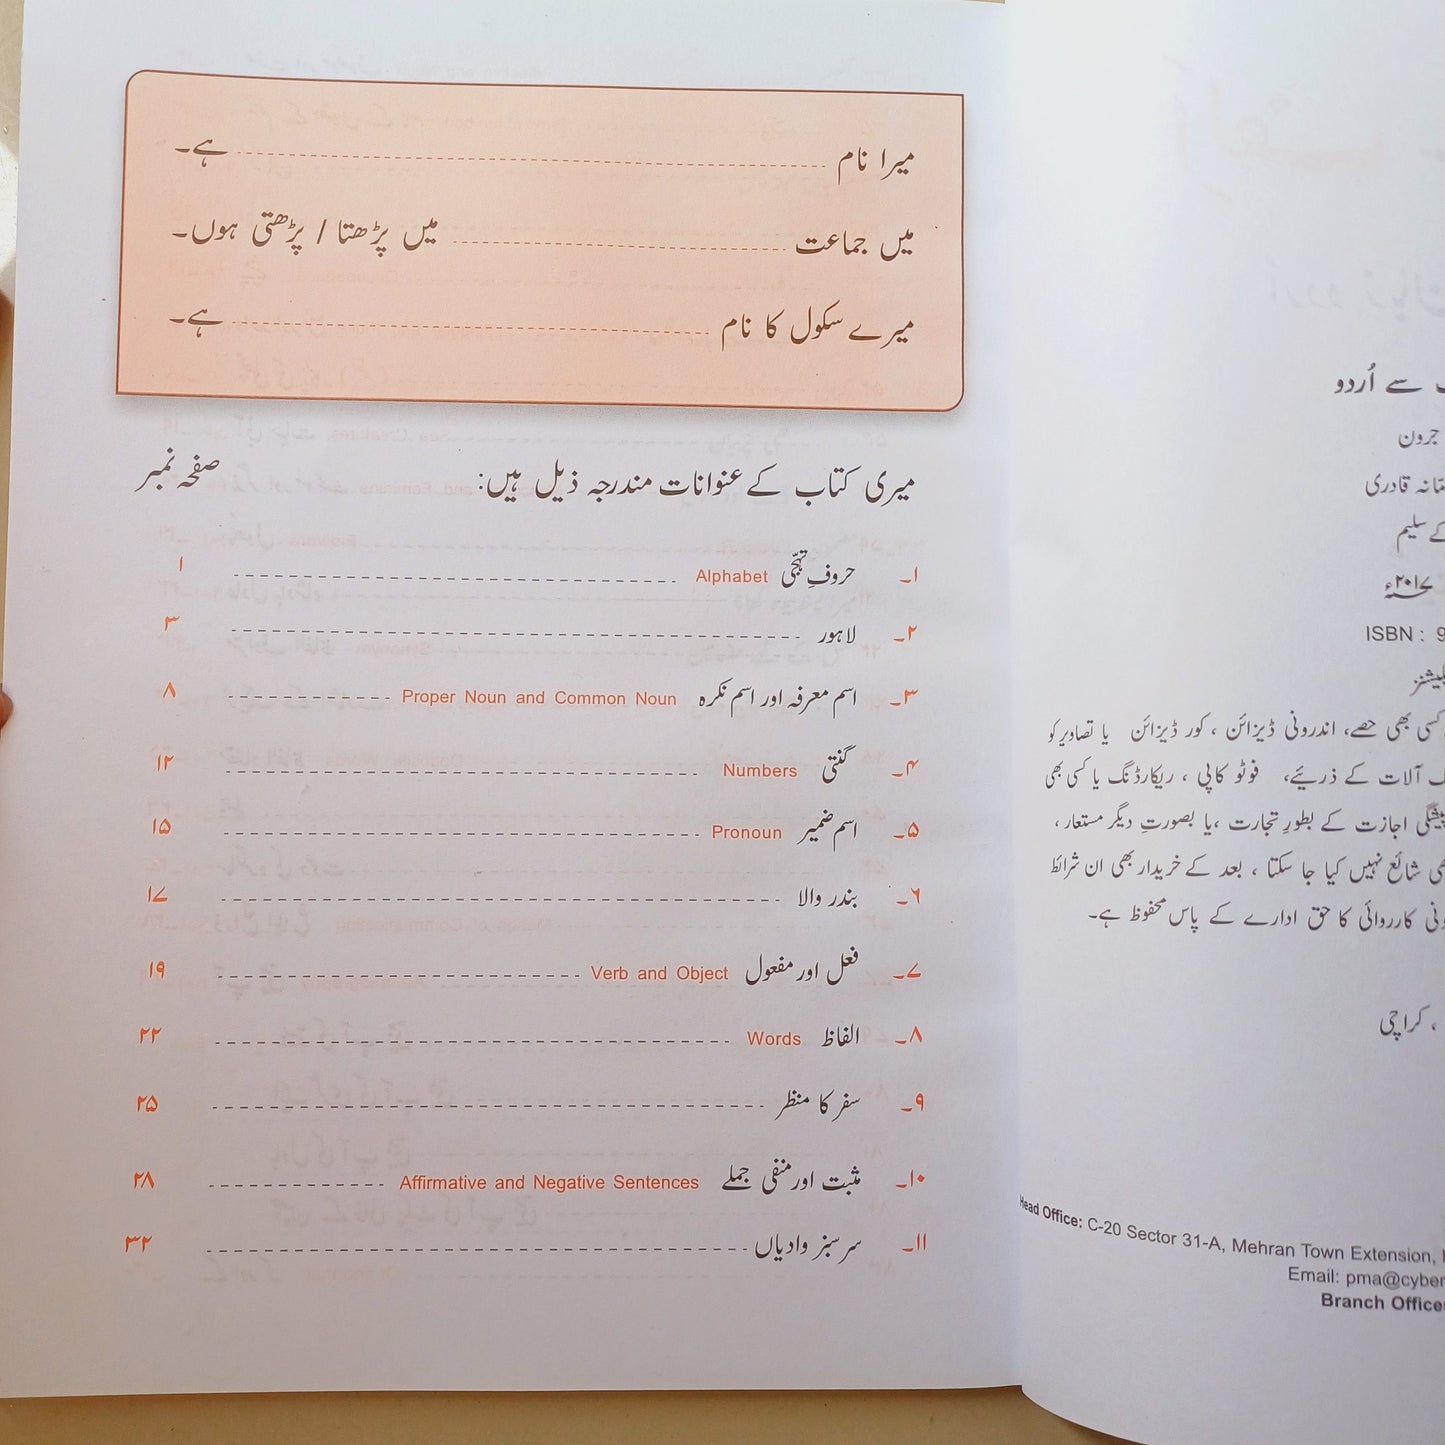 میرا نام ------------ ہے۔
میں جماعت ------------ میں پڑھتا / پڑھتی ہوں۔
میرے سکول کا نام ------------ ہے۔
میری کتاب کے عنوانات مندرجہ ذیل ہیں: صفحہ نمبر
۱۔ حروفِ تہجّی Alphabet ------------ ۱
۲۔ لاہور ------------ ۳
۳۔ اسم معرفہ اور اسم نکرہ Proper Noun and Common Noun ------------ ۸
۴۔ گنتی Numbers ------------ ۱۲
۵۔ اسم ضمیر Pronoun ------------ ۱۵
۶۔ بندر والا ------------ ۱۷
۷۔ فعل اور مفعول Verb and Object ------------ ۱۹
۸۔ الفاظ Words ------------ ۲۲
۹۔ سفر کا منظر ------------ ۲۵
۱۰۔ مثبت اور منفی جملے Affirmative and Negative Sentences ------------ ۲۸
۱۱۔ سرسبز وادیاں ------------ ۳۲
سے اُردو
جرون
قادری
سلیم
۲۰۱۷ء
ISBN : 9
کسی بھی حصے، اندرونی ڈیزائن ، کور ڈیزائن یا تصاویر کو
آلات کے ذریئے، فوٹو کاپی ، ریکارڈنگ یا کسی بھی
پیشگی اجازت کے بطورِ تجارت ،یا بصورتِ دیگر مستعار ،
شائع نہیں کیا جا سکتا ، بعد کے خریدار بھی ان شرائط
کارروائی کا حق ادارے کے پاس محفوظ ہے۔
، کراچی
Head Office: C-20 Sector 31-A, Mehran Town Extension,
Email: pma@cyber
Branch Office